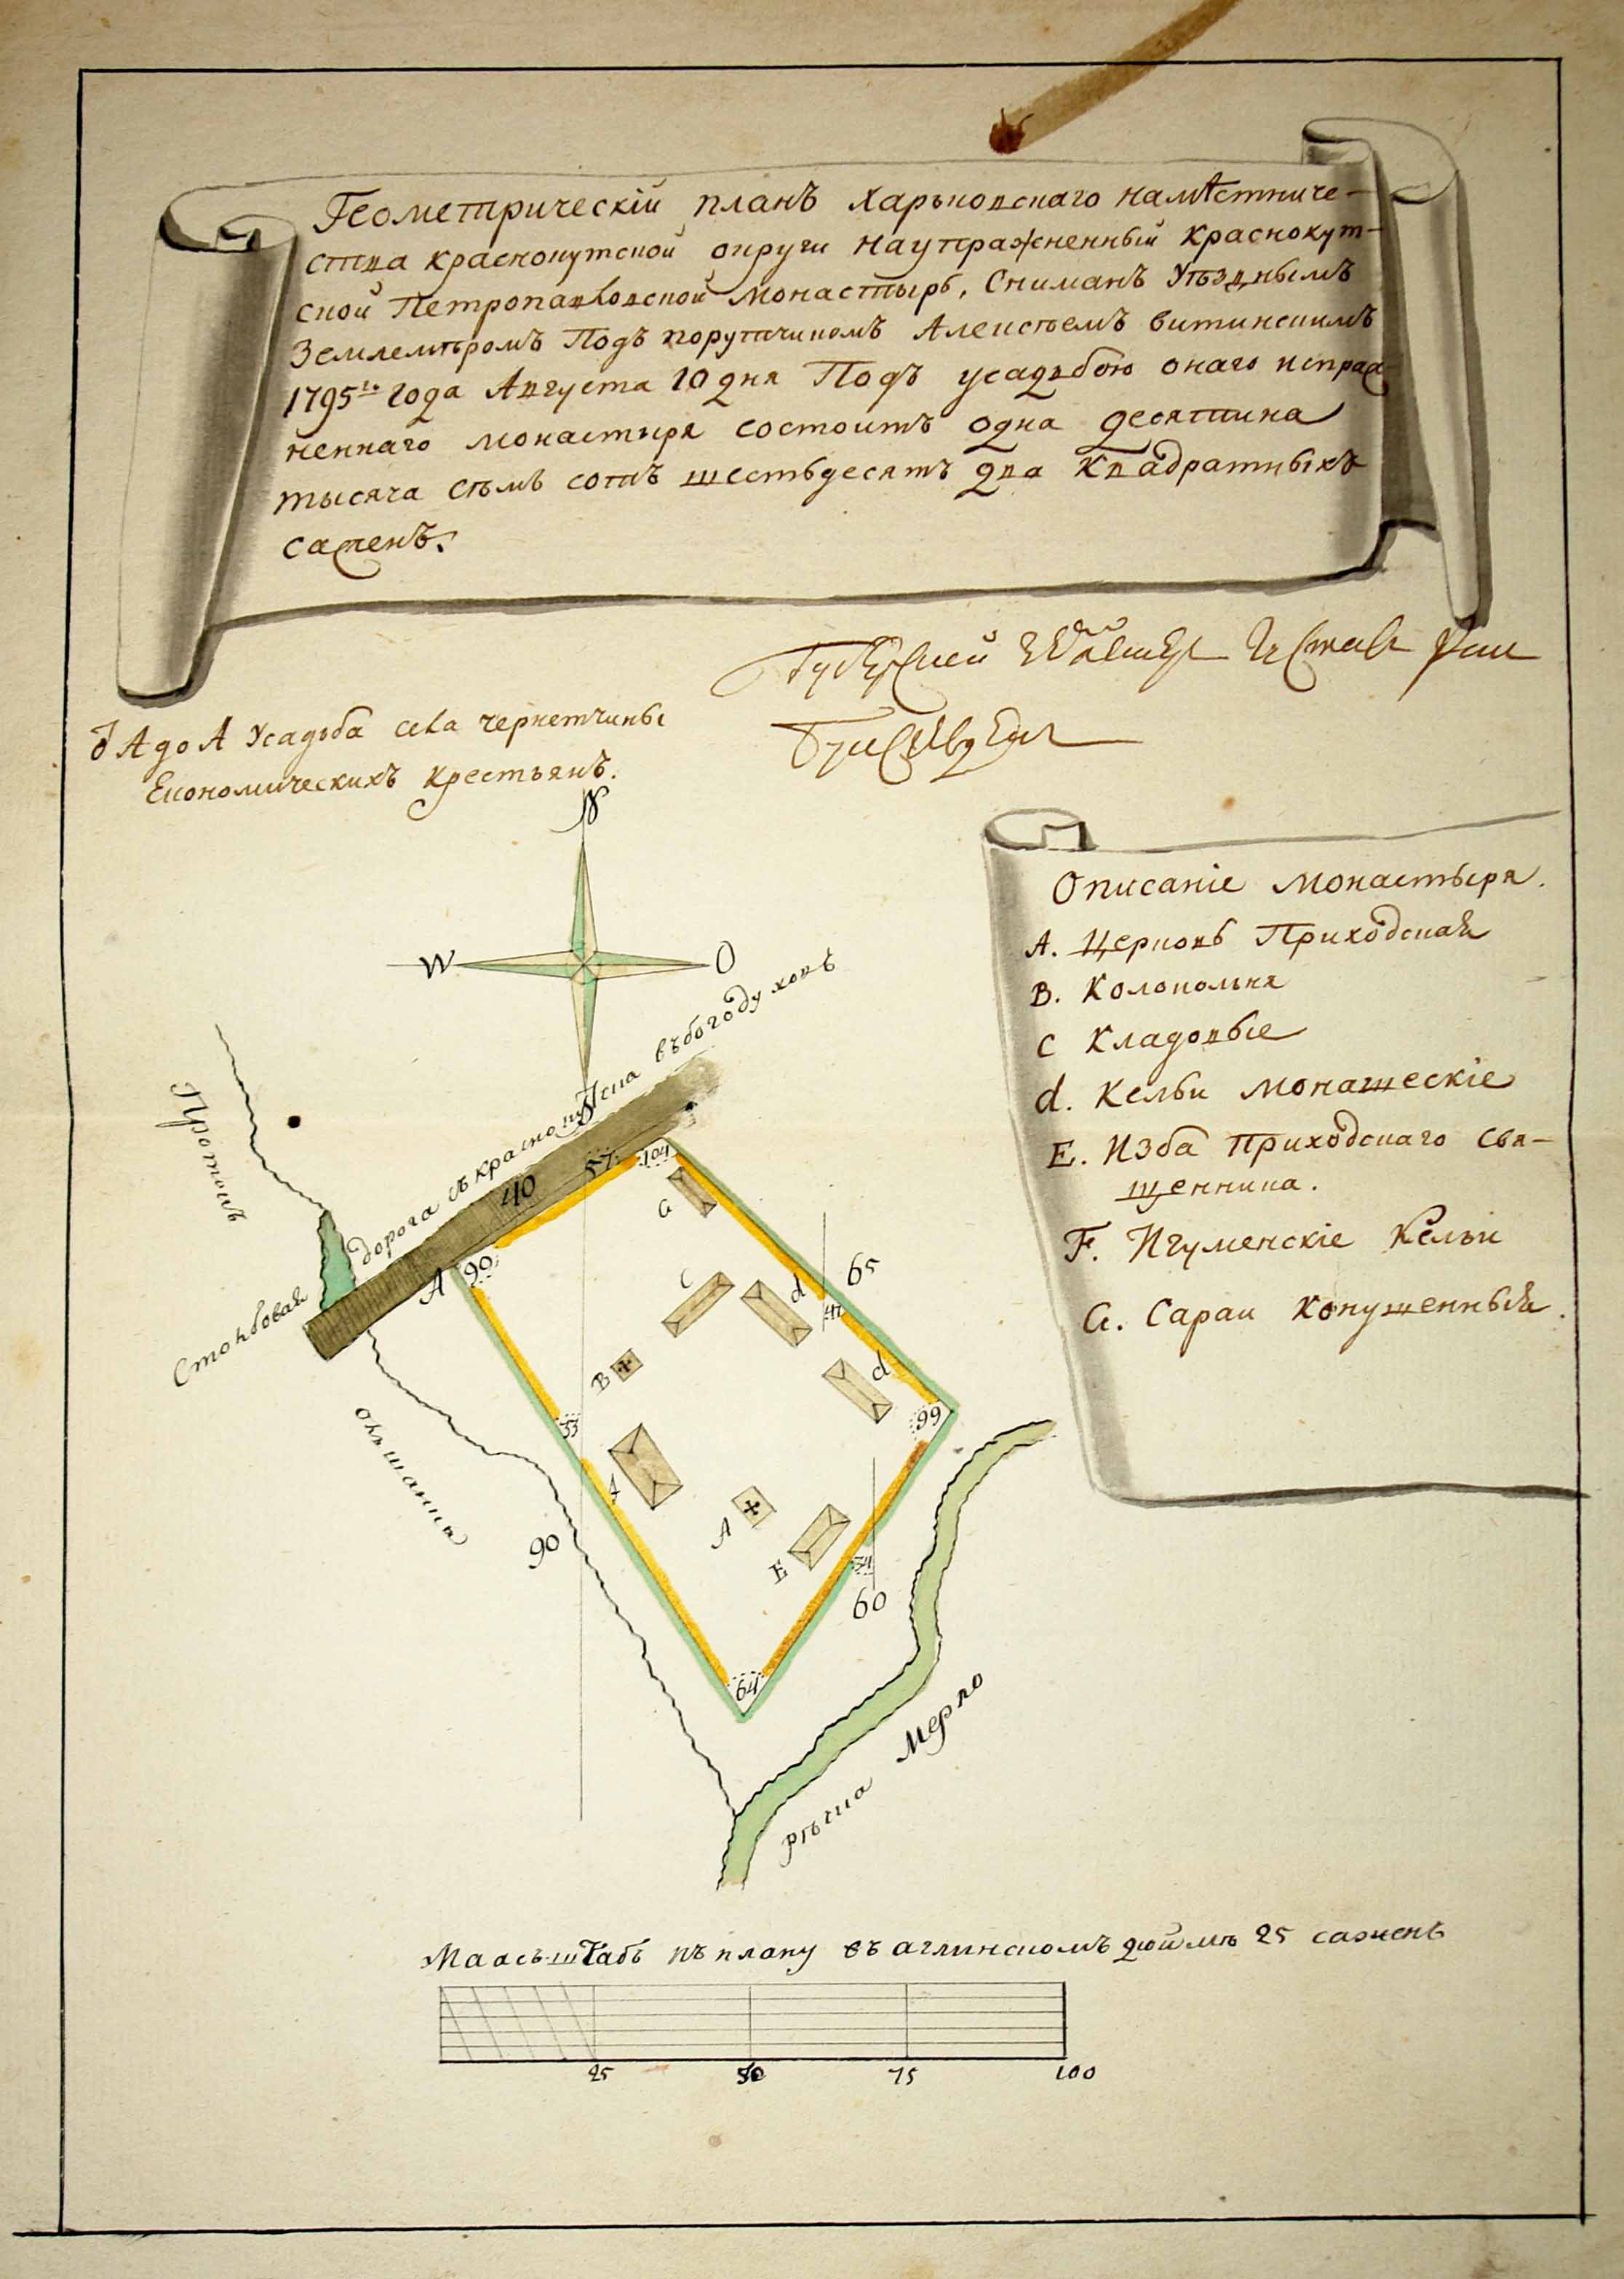 Геометрическій планъ Харьковскаго намѣстниче-
ства краснокутской округи на упражненный краснокут-
ской Петропавловской монастырь, Сниманъ Уѣзднымъ
Землемѣромъ Подъ порутчикомъ Алексѣемъ витинскимъ
1795го года Августа 10 дня Подъ усадьбою онаго испраз-
неннаго монастыря состоитъ одна десятина
тысяча сѣмь сотъ шестьдесятъ два квадратныхъ
саженъ.
А до А Усадьба села чернетчины
Економическихъ крестьянъ.
N
W O
S
Описаніе монастыря.
A. Церковь Приходская
B. Колокольня
C Кладовые
d. Кельи монашескіе
E. Изба приходскаго свя-
щенника.
F. Игуменскіе кельи
G. Сараи конушенный.
Столбовая дорога съ краснокутска въ богодуховъ
Протокъ
40
57
104
90
A
G
C
d
65
47
B
d
99
33
A
E
34
60
90
64
рѣчка Мерло
Маасъштабъ къ плану въ аглинскомъ дюймѣ 25 саженъ
25 50 75 100